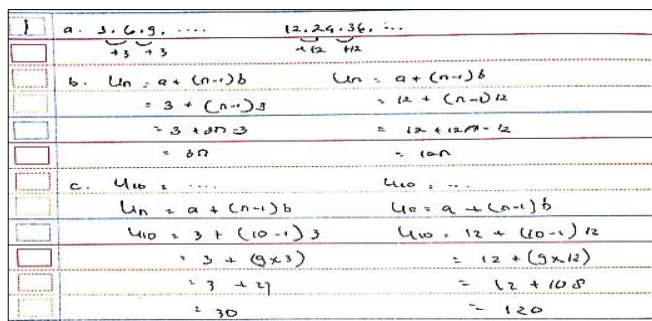 1 a. 3, 6, 9, .... 12, 24, 36, ...
+3 +3 +12 +12
b. Un = a + (n-1) b Un = a + (n-1) b
= 3 + (n-1) 3 = 12 + (n-1) 12
= 3 + 3n - 3 = 12 + 12n - 12
= 3n = 12n
c. U10 = .... U10 = ...
Un = a + (n-1) b Un = a + (n-1) b
U10 = 3 + (10-1) 3 U10 = 12 + (10-1) 12
= 3 + (9x3) = 12 + (9x12)
= 3 + 27 = 12 + 108
= 30 = 120